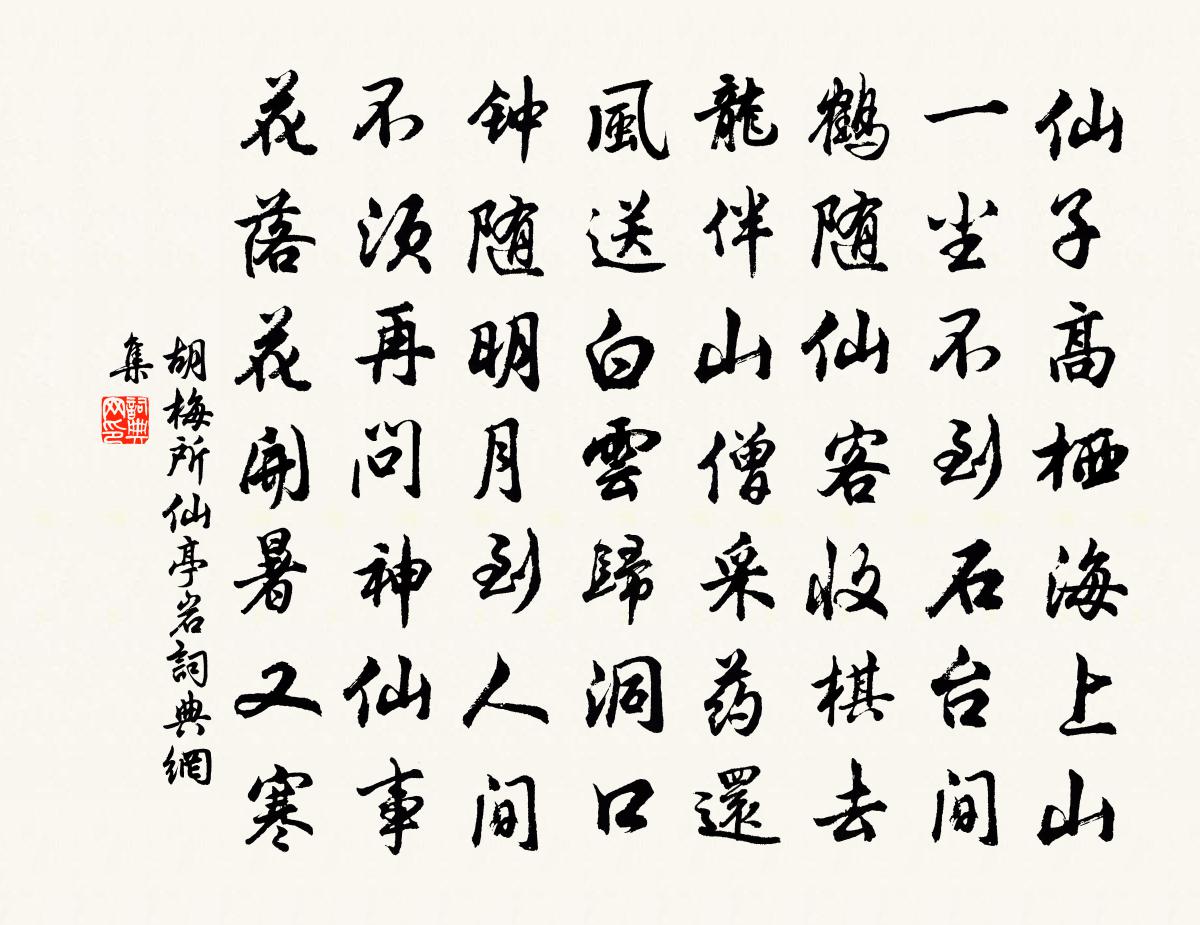 仙子高栖海上山
一尘不到石台间
鹤随仙客收棋去
龍伴山僧采药還
風送白雲歸洞口
钟随明月到人间
不须再问神仙事
花落花開暑又寒
胡梅所仙亭岩詞典網
集
詞典网印